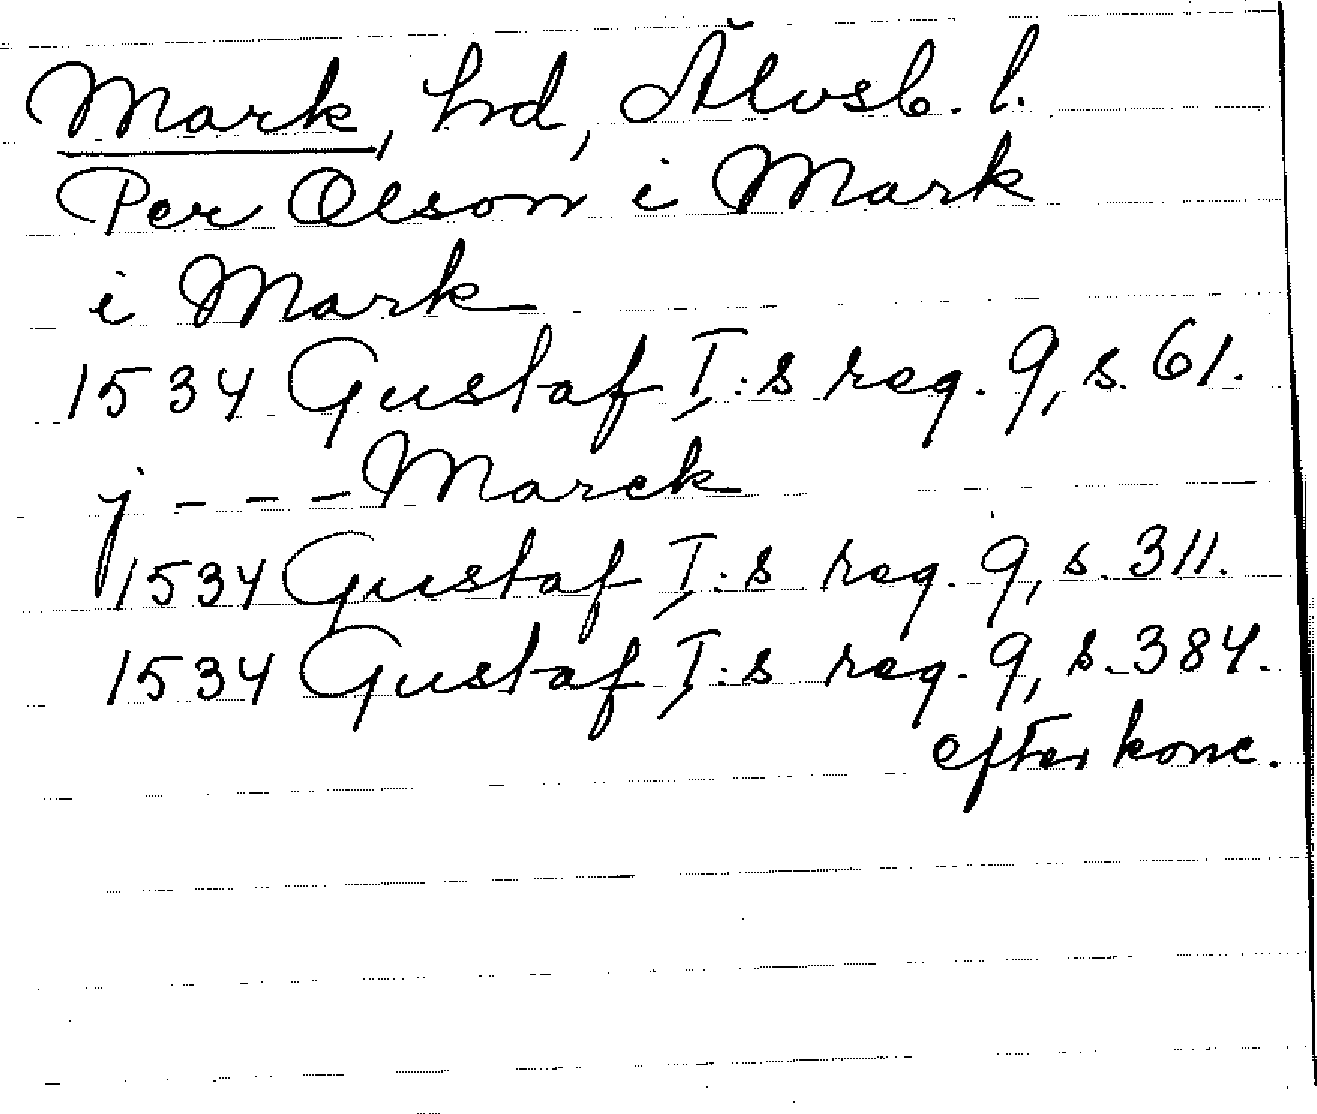 Mark, hd, Älvsb. l.
Per Olson i Mark
i Mark
1534 Gustaf I:s reg. 9, s. 61.
j - - - Marck
1534 Gustaf I:s reg. 9, s. 311.
1534 Gustaf I:s reg. 9, s. 384.
efter konc.